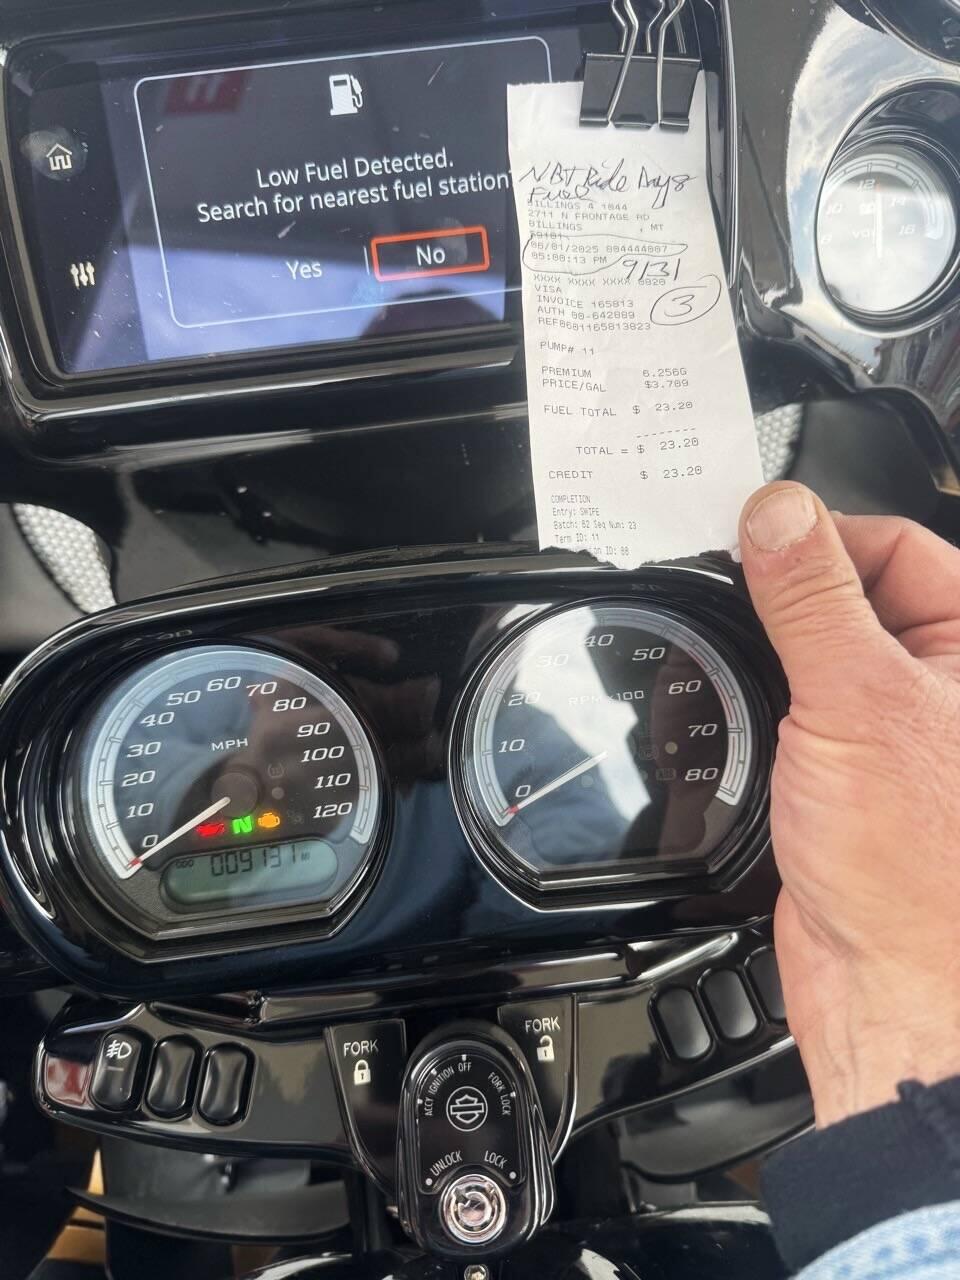 Low Fuel Detected.
Search for nearest fuel station
Yes
No
NBT Ride Days
Fuel
BILLINGS 4 1044
2711 N FRONTAGE RD
BILLINGS , MT
59101
06/01/2025 804444007
05:00:13 PM
9131
XXXX XXXX XXXX 0020
VISA
3
INVOICE 165813
AUTH 00-642889
REF0601165813023
PUMP# 11
PREMIUM 6.256G
PRICE/GAL $3.709
FUEL TOTAL $ 23.20
--------
TOTAL = $ 23.20
CREDIT $ 23.20
COMPLETION
Entry: SWIPE
Batch: 62 Seq Num: 23
Term ID: 11
ID: 00
8 10 12 14 16
VOLTS
0 10 20 30 40 50 60 70 80 90 100 110 120
MPH
N
ODO 009131 MI
0 10 20 30 40 50 60 70 80
RPM x100
FORK
FORK
ACCY IGNITION OFF FORK LOCK
UNLOCK LOCK